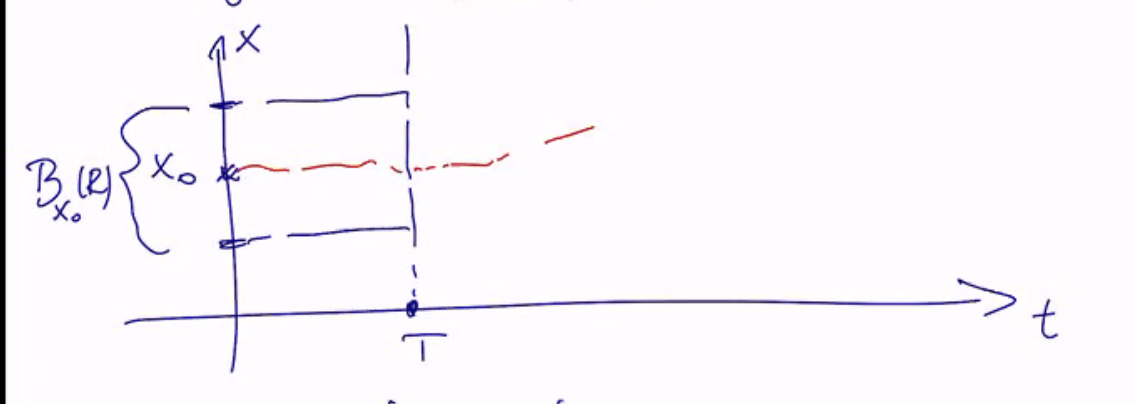 x
B_{x₀}(R)
x₀
t
T